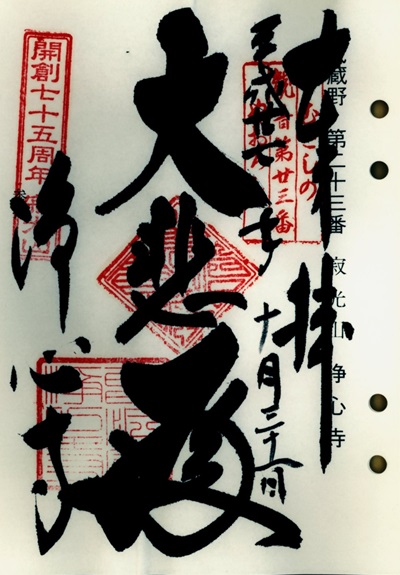 蔵野 第二十三番 寂光山 浄心寺
奉拝
むさしの
観音第廿三番
平成廿七年 十月三十一日
大悲殿
開創七十五周年
浄心寺